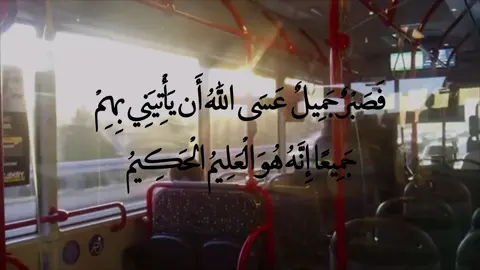 فَصَبْرٌ جَمِيلٌ عَسَى اللَّهُ أَن يَأْتِيَنِي بِهِمْ
جَمِيعًا إِنَّهُ هُوَ الْعَلِيمُ الْحَكِيمُ